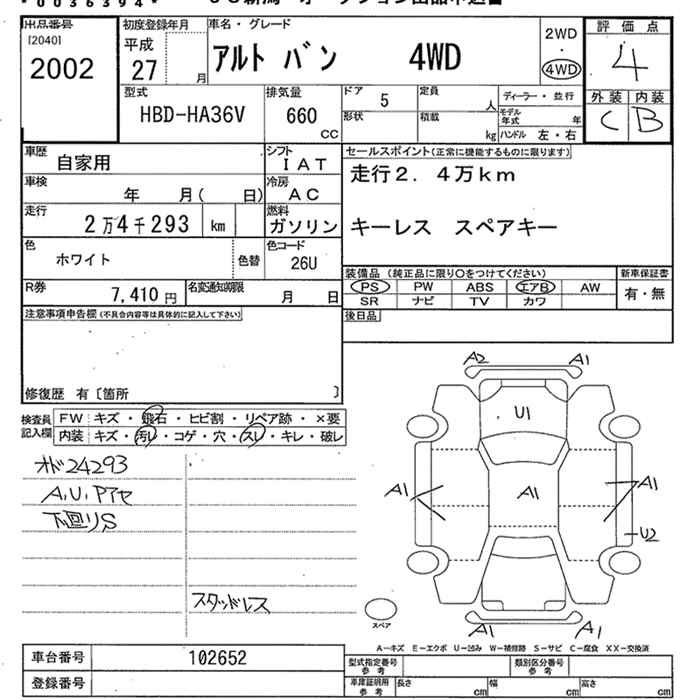 *0036394*
出品番号
[2040]
2002
初度登録年月
平成
27 月
車名・グレード
アルト バン 4WD
2WD
・
4WD
評価点
4
外装 内装
C B
型式
HBD-HA36V
排気量
660
CC
ドア 5
形状
定員 人
積載 kg
ディーラー・並行
モデル年式 年
ハンドル 左・右
車歴
自家用
シフト
IAT
車検
年 月( 日)
冷房
AC
走行
2万4千293 km
燃料
ガソリン
色
ホワイト
色替
色コード
26U
R券
7,410円
名変通知期限
月 日
セールスポイント(正常に機能するものに限ります)
走行2.4万km
キーレス スペアキー
装備品(純正品に限り○をつけてください)
PS PW ABS エアB AW
SR ナビ TV カワ
新車保証書
有・無
後日品
注意事項申告欄(不具合内容等は具体的に記入して下さい)
修復歴 有〔箇所 〕
検査員
記入欄
FW キズ・飛石・ヒビ割・リペア跡・×要
内装 キズ・汚レ・コゲ・穴・スレ・キレ・破レ
オド24293
A,U,Pアセ
下回りS
スタッドレス
A2 A1
U1
A1 A1 A1
U2
A1 A1
スペア
A-キズ E-エクボ U-凹み W-補修跡 S-サビ C-腐食 XX-交換済
車台番号 102652
登録番号
型式指定番号
参考
類別区分番号
参考
車庫証明用
参考
長さ cm 幅 cm 高さ cm